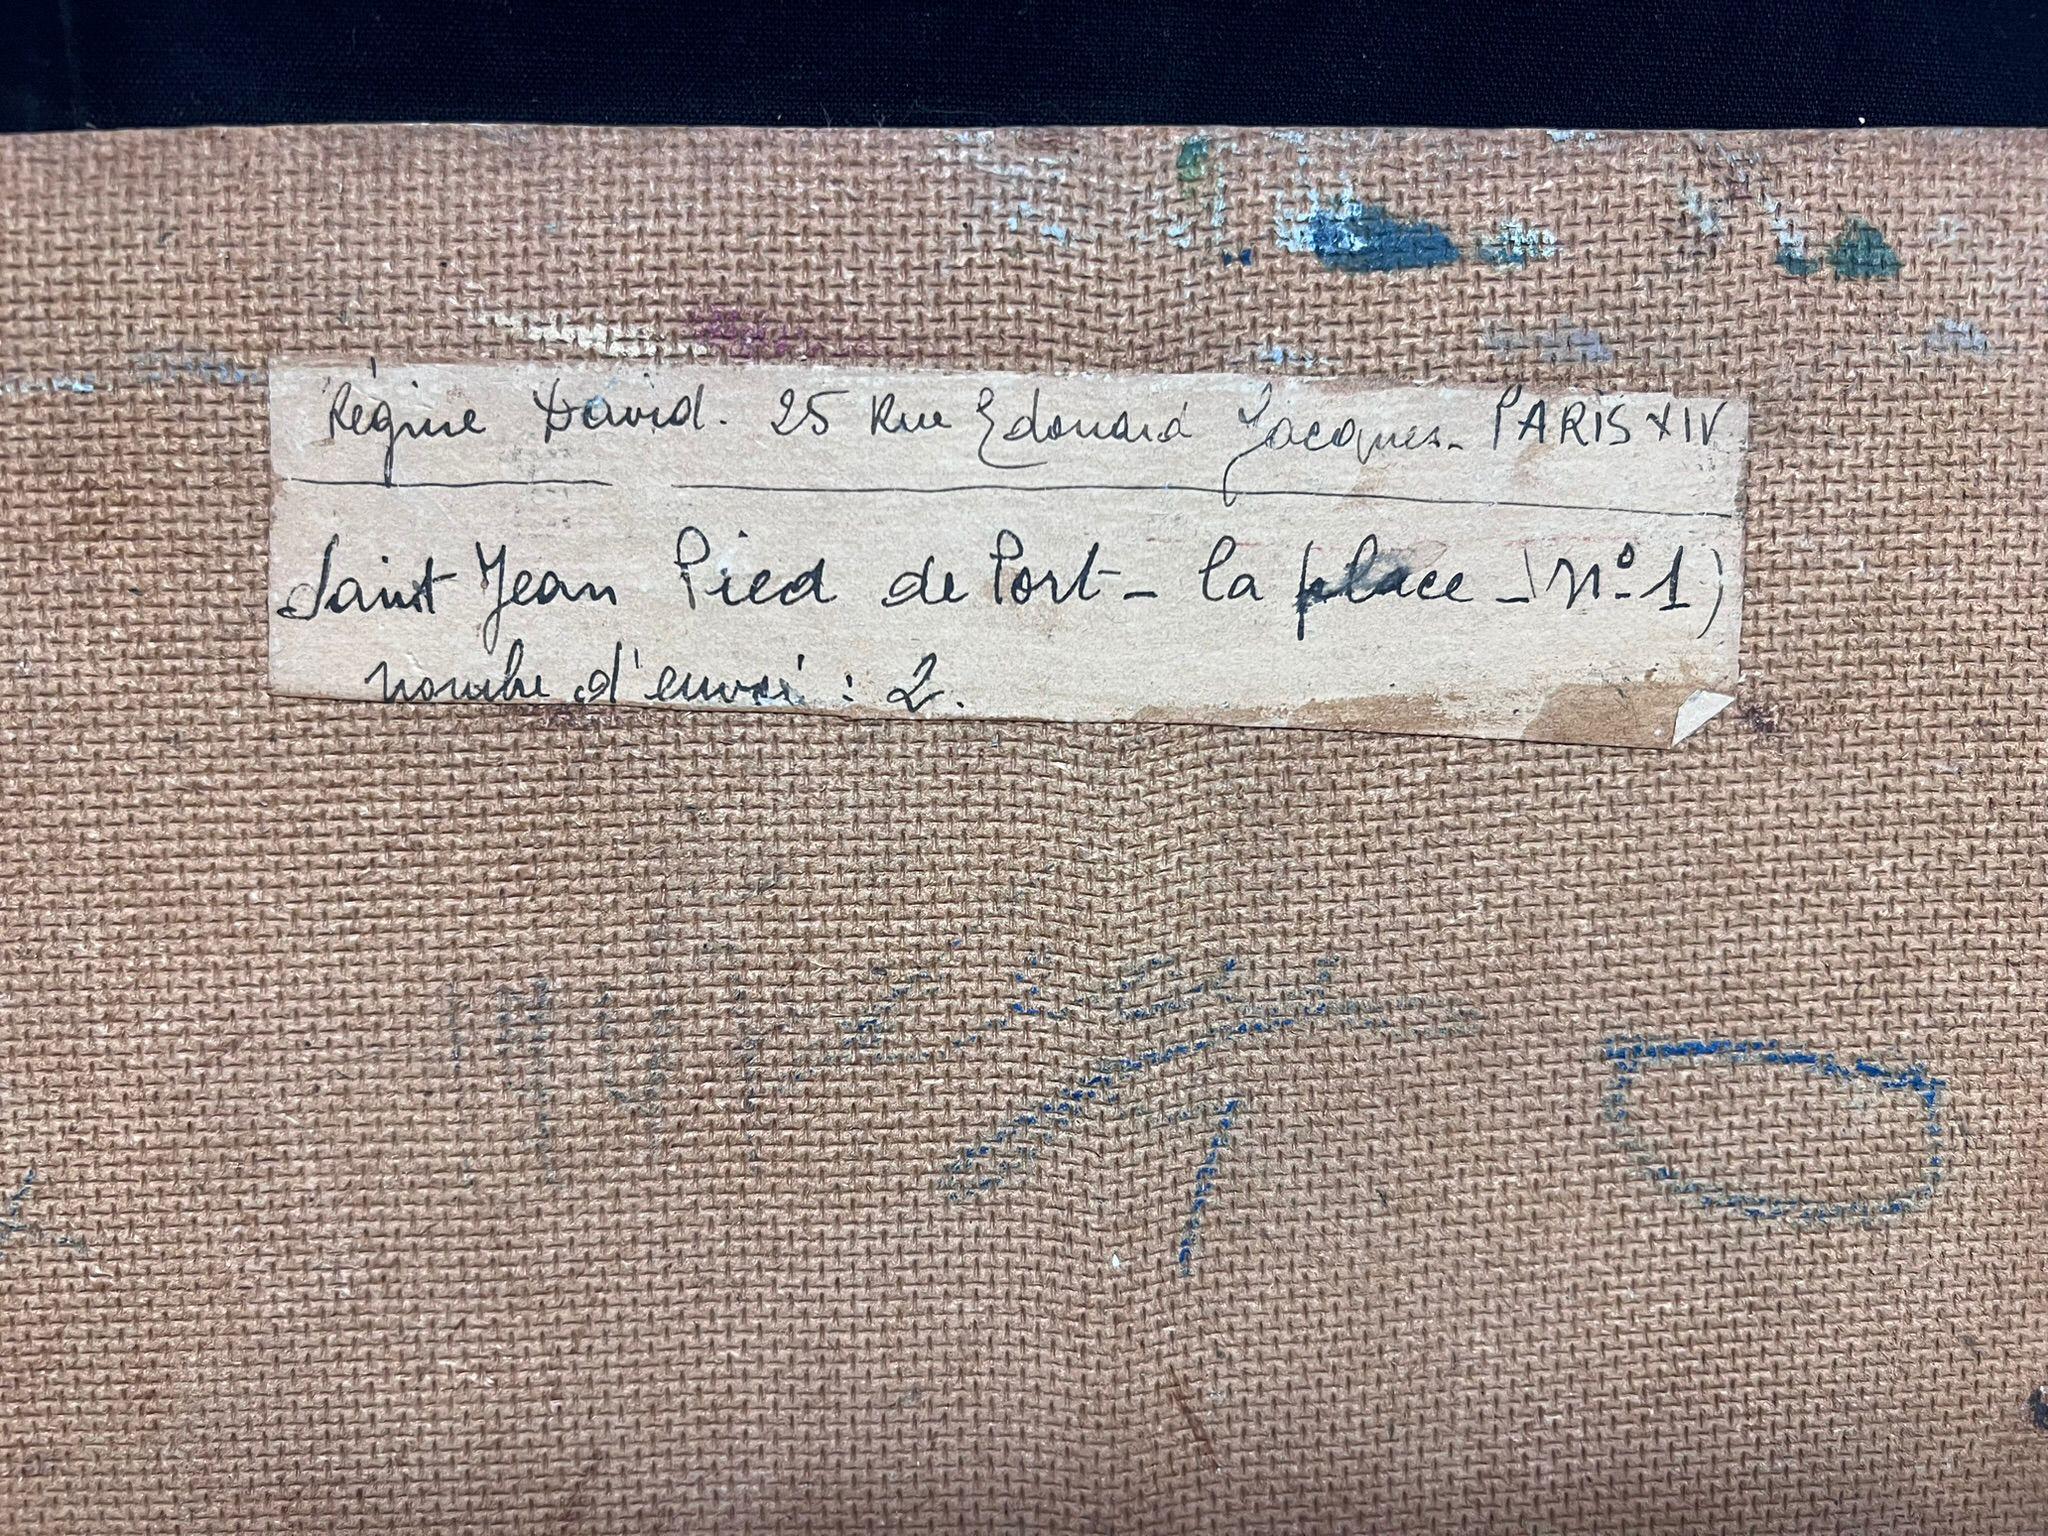 Régine David. 25 Rue Edouard Jacques_ PARIS XIV
Saint Jean Pied de Port - la place - (n° 1)
nombre d'envoi : 2.